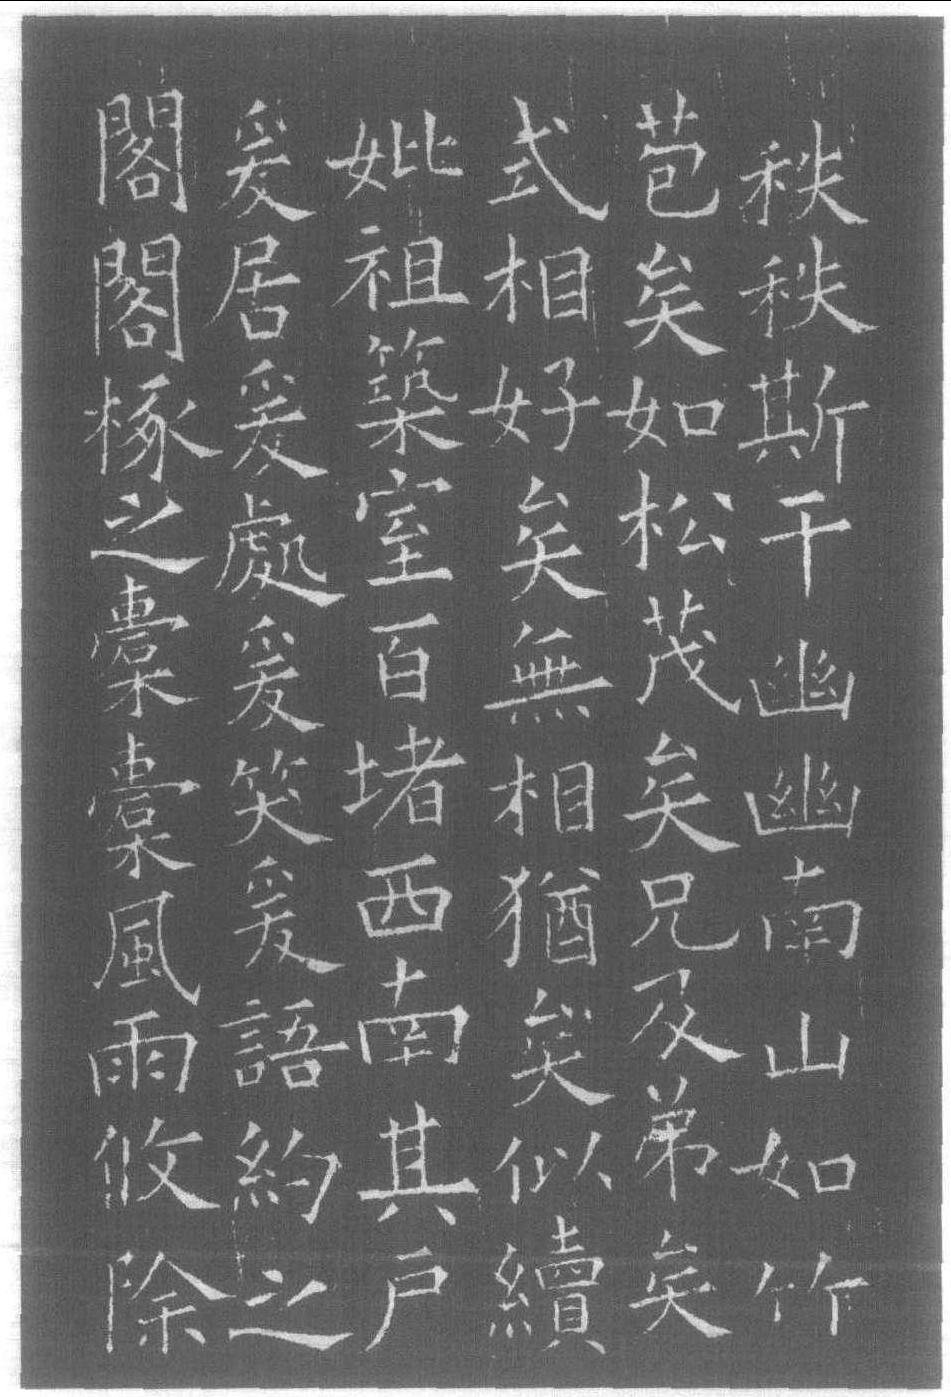 秩秩斯干幽幽南山如竹
苞矣如松茂矣兄及弟矣
式相好矣無相猶矣似續
妣祖築室百堵西南其戶
爰居爰處爰笑爰語約之
閣閣椓之橐橐風雨攸除